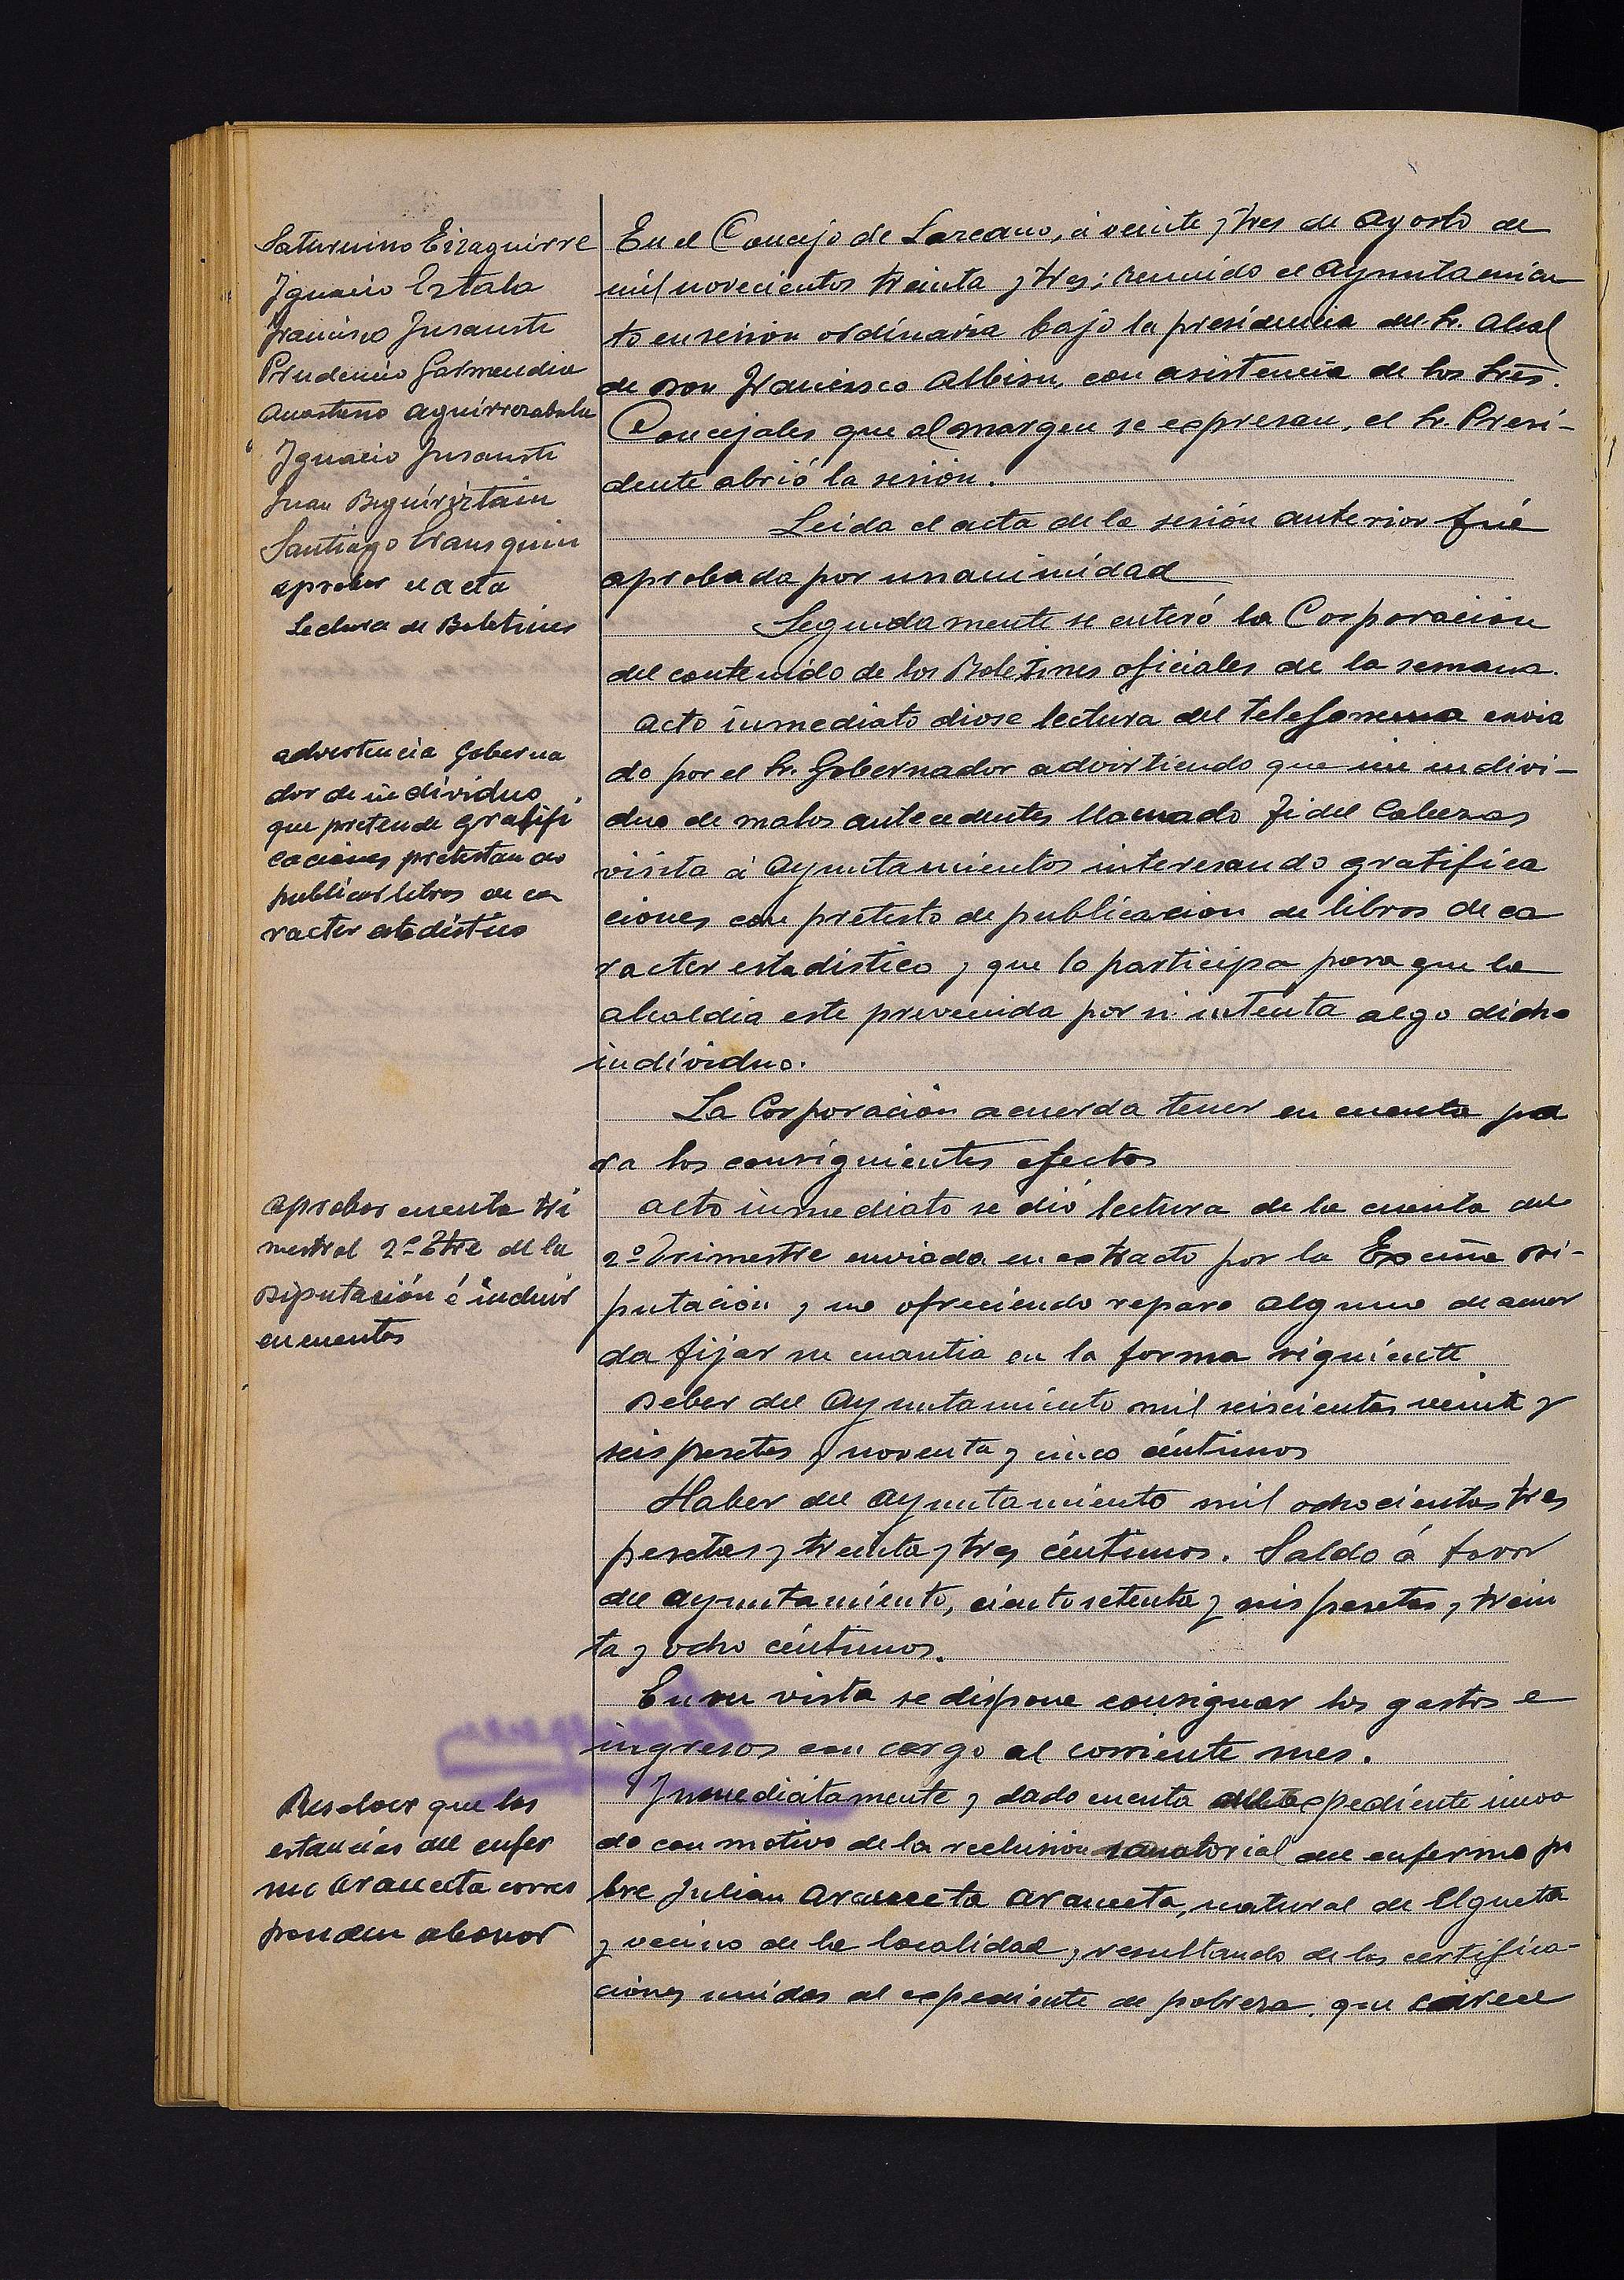 Saturnino Eizaguirre
Ignacio Estala
Francisco Insausti
Prudencio Garmendia
Anastasio Aguirrezabala
Ignacio Insausti
Juan Beguiriztain
Santiago Irausquin
aprobar el acta
Lectura de Boletines
advertencia Goberna
dor de individuo
que pretende gratifi
caciones pretestando
publicar libros de ca
racter estadistico
aprobar cuenta tri
mestral 2º Ttre de la
Diputación é incluir
en cuentas
Resolver que las
estancias del enfer
mo Araneta corres
ponden abonar
En el Concejo de Lazcano, á veinte y tres de Agosto de
mil novecientos treinta y tres; reunido el Ayuntamien
to en sesion ordinaria bajo la presidencia del Sr. Alcal
de Don Francisco Albisu con asistencia de los Sres.
Concejales que al margen se expresan, el Sr. Presi-
dente abrió la sesión.
Leida el acta de la sesión anterior fué
aprobada por unanimidad
Seguidamente se enteró la Corporacion
del contenido de los Boletines oficiales de la semana.
Acto inmediato diose lectura del telefonema envia
do por el Sr. Gobernador advirtiendo que un indivi-
duo de malos antecedentes llamado Fidel Cabezas
visita á Ayuntamientos interesando gratifica
ciones con pretesto de publicacion de libros de ca
racter estadistico y que lo participa para que la
alcaldia este prevenida por si intenta algo dicho
individuo.
La Corporación acuerda tener en cuenta pa
ra los consiguientes efectos
Acto inmediato se dió lectura de la cuenta del
2º Trimestre enviada en extracto por la Excma Di-
putación y no ofreciendo reparo alguno se acuer
da fijar su cuantia en la forma siguiente
Deber del Ayuntamiento mil seiscientas veinte y
seis pesetas y noventa y cinco céntimos
Haber del Ayuntamiento mil ochocientas tres
pesetas y treinta y tres céntimos. Saldo á favor
del Ayuntamiento, ciento setenta y seis pesetas y trein
ta y ocho céntimos.
En su vista se dispone consignar los gastos e
ingresos con cargo al corriente mes.
Inmediatamente y dado cuenta del expediente incoa
do con motivo de la reclusión sanatorial del enfermo po
bre Julian Araneta Araneta, natural de Elgueta
y vecino de la localidad y resultando de las certifica-
ciones unidas al expediente de pobreza, que carece